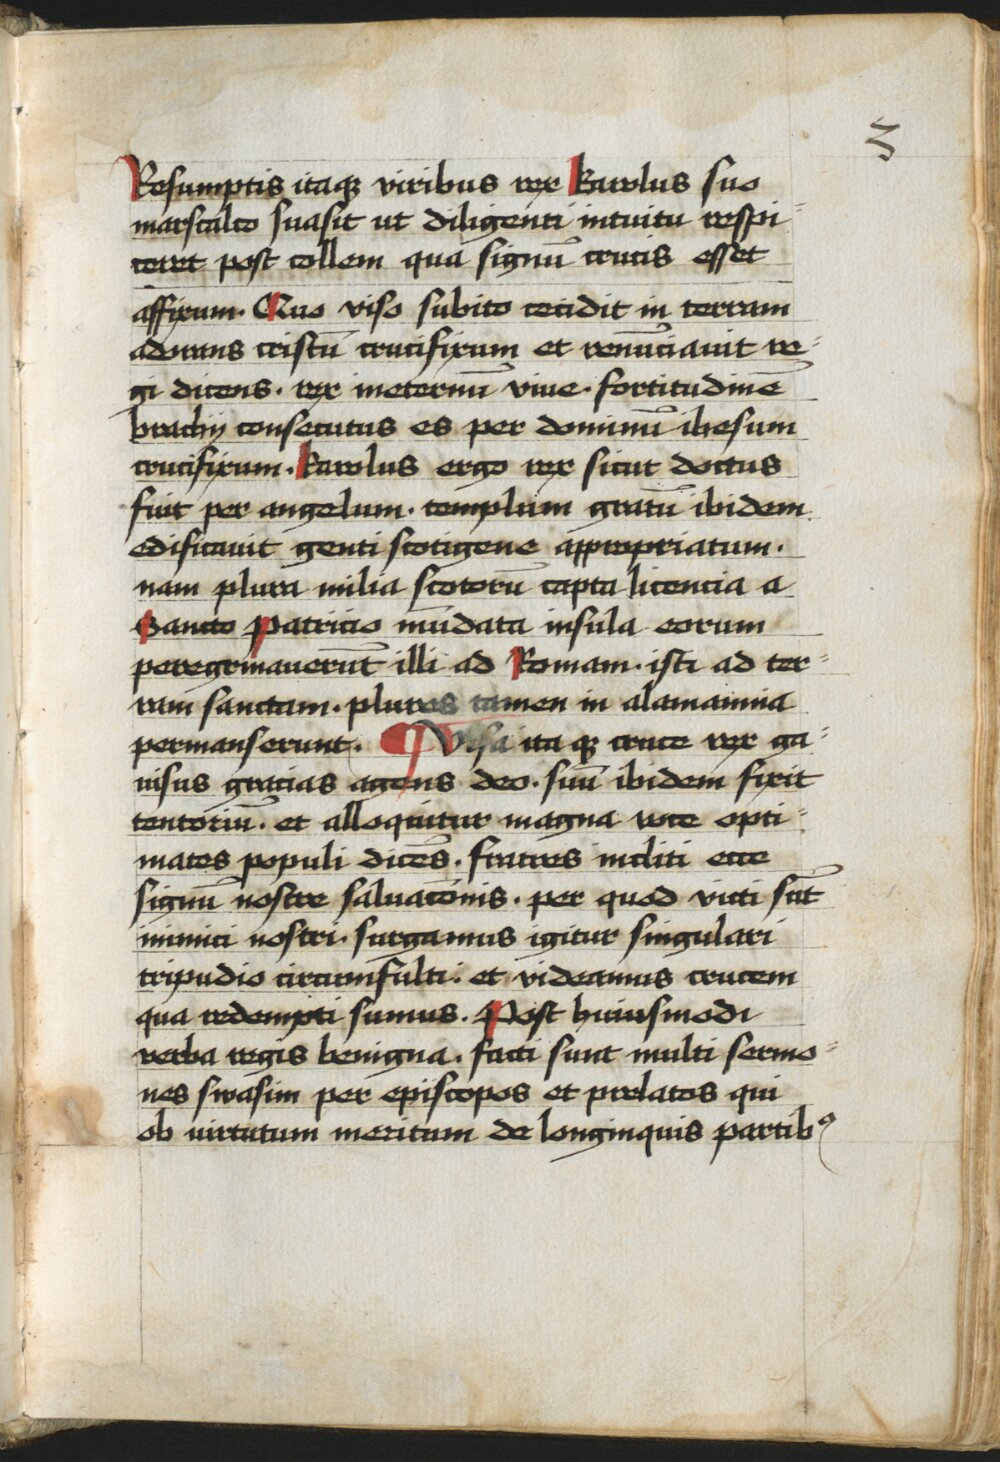 3
Resumptis itaqꝫ viribus rex karolus suo
marscalco suasit ut diligenti intuitu respi⸗
ceret post collem qua signū crucis esset
affixum. Quo viso subito cecidit in terram
adorans cristū crucifixum et renūciauit re⸗
gi dicens. rex ineternū viue. fortitudinē
brachij consecutus es per dominū ihesum
crucifixum. karolus ergo rex sicut doctus
fuit per angelum. templum gratū ibidem
edificauit genti scotigene appropriatum.
nam plura milia scotorū capta licencia a
Sancto Patricio mūdata insula eorum
peregrinauerūt illi ad Romam. isti ad ter⸗
ram sanctam. plures tamen in alamannia
permanserunt. ¶ Visa itaqꝫ cruce rex ga⸗
uisus gracias agens deo. suū ibidem fixit
tentoriū. et alloquitur magna voce opti⸗
mates populi dicēs. fratres incliti ecce
signū nostre saluacōnis. per quod victi sūt
inimici nostri. surgamus igitur singulari
tripudio circumfulti. et videamus crucem
qua redempti sumus. Post huiusmodi
verba regis benigna. facti sunt multi sermo⸗
nes swasim per episcopos et prelatos qui
ob uirtutum meritum de longinquis partibꝰ